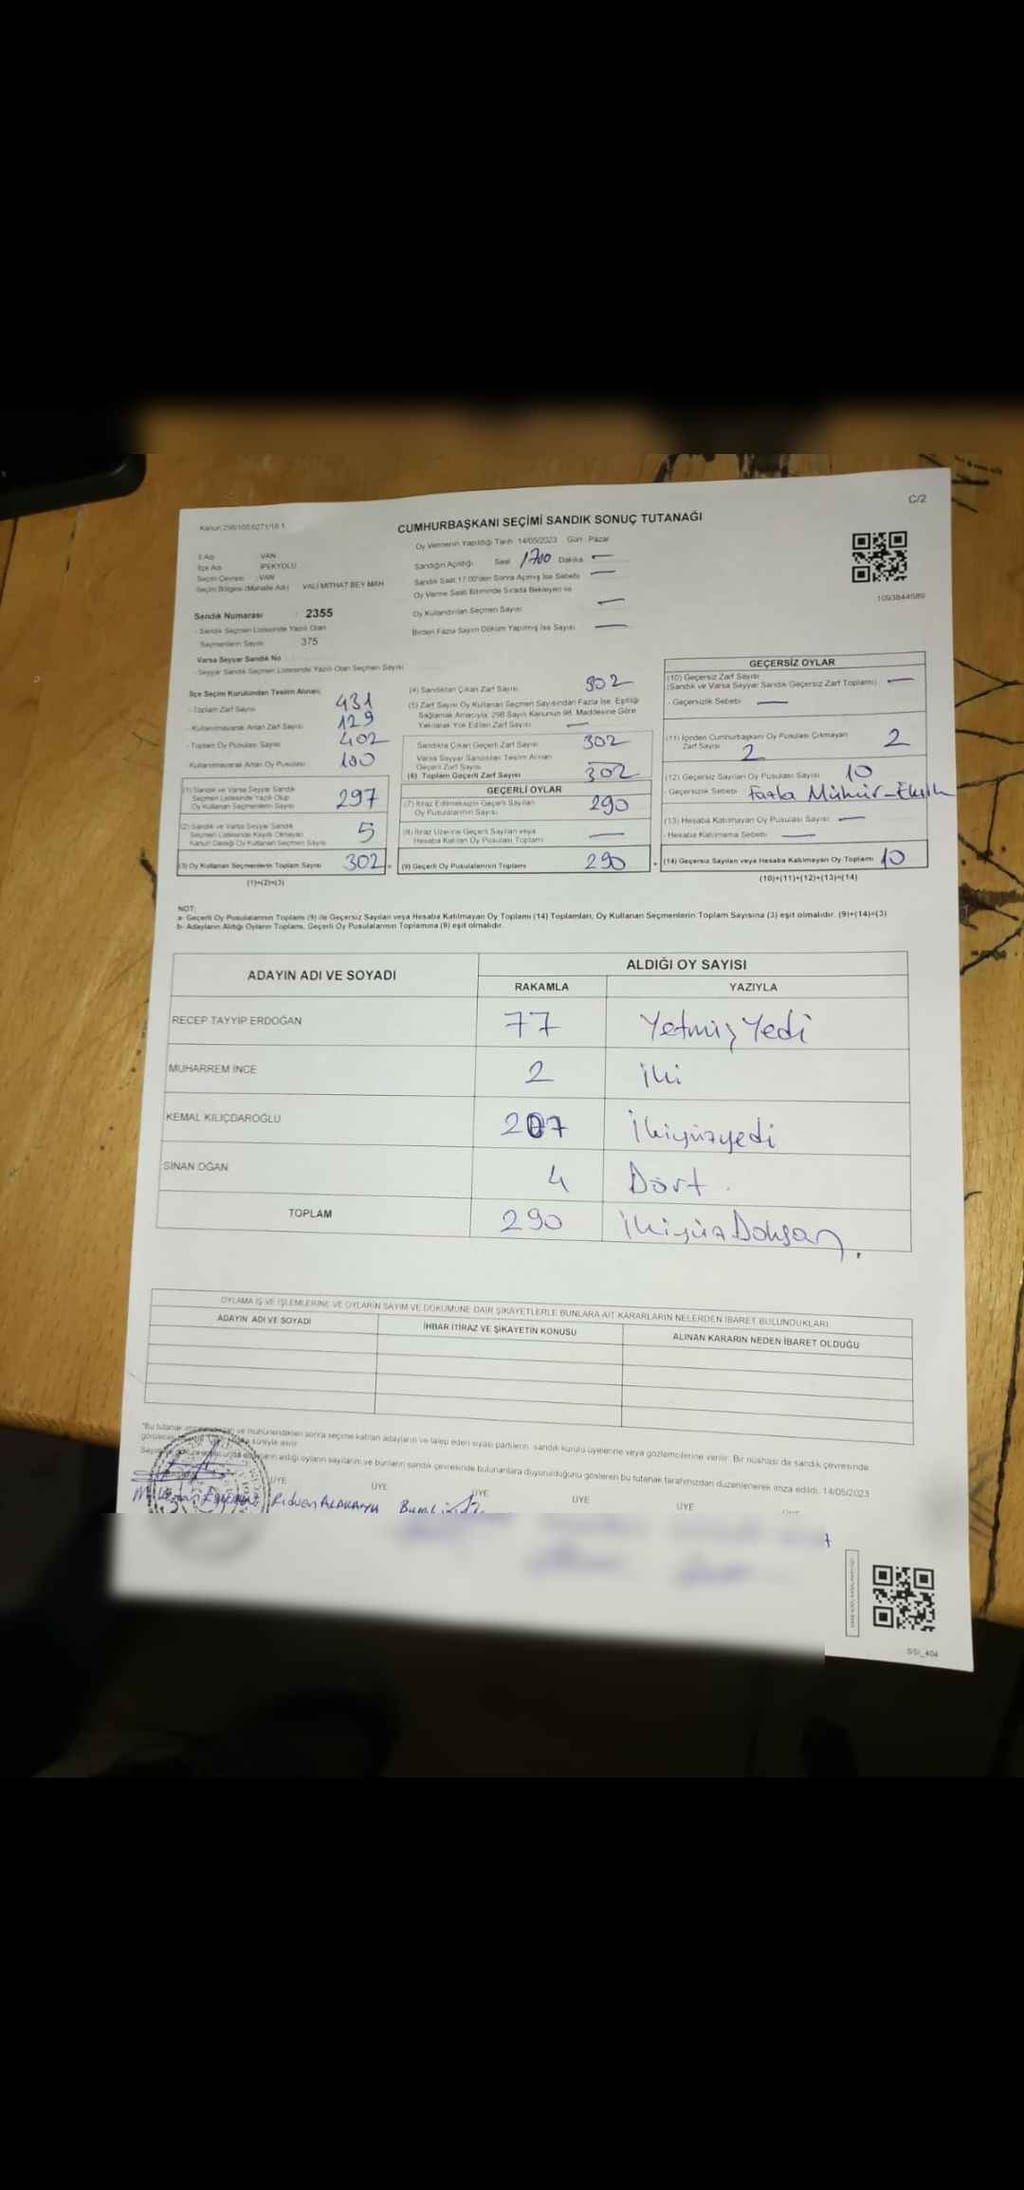 C/2
Kanun:298/105 6271/16 1
CUMHURBAŞKANI SEÇİMİ SANDIK SONUÇ TUTANAĞI
Oy Vermenin Yapıldığı Tarih 14/05/2023 Gün: Pazar
İl Adı VAN
İlçe Adı İPEKYOLU
Seçim Çevresi VAN
Seçim Bölgesi (Mahalle Adı) VALİ MİTHAT BEY MAH
Sandık Numarası : 2355
- Sandık Seçmen Listesinde Yazılı Olan
Seçmenlerin Sayısı 375
Varsa Seyyar Sandık No
- Seyyar Sandık Seçmen Listesinde Yazılı Olan Seçmen Sayısı
Sandığın Açıldığı Saat 1700 Dakika —
Sandık Saat 17.00'den Sonra Açılmış İse Sebebi —
Oy Verme Saati Bitiminde Sırada Bekleyen ve
Oy Kullandırılan Seçmen Sayısı —
Birden Fazla Sayım Döküm Yapılmış İse Sayısı —
1093844589
İlçe Seçim Kurulundan Teslim Alınan;
- Toplam Zarf Sayısı 431
- Kullanılmayarak Artan Zarf Sayısı 129
- Toplam Oy Pusulası Sayısı 402
- Kullanılmayarak Artan Oy Pusulası 100
(1) Sandık ve Varsa Seyyar Sandık
Seçmen Listesinde Yazılı Olup
Oy Kullanan Seçmenlerin Sayısı 297
(2) Sandık ve Varsa Seyyar Sandık
Seçmen Listesinde Kayıtlı Olmayan
Kanun Gereği Oy Kullanan Seçmen Sayısı 5
(3) Oy Kullanan Seçmenlerin Toplam Sayısı 302
(1)+(2)=(3)
(4) Sandıktan Çıkan Zarf Sayısı 302
(5) Zarf Sayısı Oy Kullanan Seçmen Sayısından Fazla İse, Eşitliği
Sağlamak Amacıyla, 298 Sayılı Kanunun 98. Maddesine Göre
Yakılarak Yok Edilen Zarf Sayısı —
Sandıkta Çıkan Geçerli Zarf Sayısı 302
Varsa Seyyar Sandıktan Teslim Alınan
Geçerli Zarf Sayısı —
(6) Toplam Geçerli Zarf Sayısı 302
GEÇERLİ OYLAR
(7) İtiraz Edilmeksizin Geçerli Sayılan
Oy Pusulalarının Sayısı 290
(8) İtiraz Üzerine Geçerli Sayılan veya
Hesaba Katılan Oy Pusulası Toplamı —
(9) Geçerli Oy Pusulalarının Toplamı 290
GEÇERSİZ OYLAR
(10) Geçersiz Zarf Sayısı
(Sandık ve Varsa Seyyar Sandık Geçersiz Zarf Toplamı) —
- Geçersizlik Sebebi —
(11) İçinden Cumhurbaşkanı Oy Pusulası Çıkmayan
Zarf Sayısı 2 2
(12) Geçersiz Sayılan Oy Pusulası Sayısı 10
- Geçersizlik Sebebi Fazla Mühür-Eksik
(13) Hesaba Katılmayan Oy Pusulası Sayısı —
- Hesaba Katılmama Sebebi —
(14) Geçersiz Sayılan veya Hesaba Katılmayan Oy Toplamı 10
(10)+(11)+(12)+(13)=(14)
NOT:
a- Geçerli Oy Pusulalarının Toplamı (9) ile Geçersiz Sayılan veya Hesaba Katılmayan Oy Toplamı (14) Toplamları, Oy Kullanan Seçmenlerin Toplam Sayısına (3) eşit olmalıdır. (9)+(14)=(3)
b- Adayların Aldığı Oyların Toplamı, Geçerli Oy Pusulalarının Toplamına (9) eşit olmalıdır.
ADAYIN ADI VE SOYADI ALDIĞI OY SAYISI
RAKAMLA YAZIYLA
RECEP TAYYİP ERDOĞAN 77 Yetmiş Yedi
MUHARREM İNCE 2 iki
KEMAL KILIÇDAROĞLU 207 ikiyüzyedi
SİNAN OĞAN 4 Dört .
TOPLAM 290 ikiyüz Doksan.
OYLAMA İŞ VE İŞLEMLERİNE VE OYLARIN SAYIM VE DÖKÜMÜNE DAİR ŞİKAYETLERLE BUNLARA AİT KARARLARIN NELERDEN İBARET BULUNDUKLARI
ADAYIN ADI VE SOYADI İHBAR İTİRAZ VE ŞİKAYETİN KONUSU ALINAN KARARIN NEDEN İBARET OLDUĞU
*Bu tutanak ve mühürlendikten sonra seçime katılan adayların ve talep eden siyasi partilerin, sandık kurulu üyelerine veya gözlemcilerine verilir. Bir nüshası da sandık çevresinde
süreyle asılır.
aldığı oyların sayılarını ve bunların sandık çevresinde bulunanlara duyurulduğunu gösteren bu tutanak tarafımızdan düzenlenerek imza edildi. 14/05/2023
ÜYE ÜYE ÜYE ÜYE ÜYE
Rıdvan
SSI_404